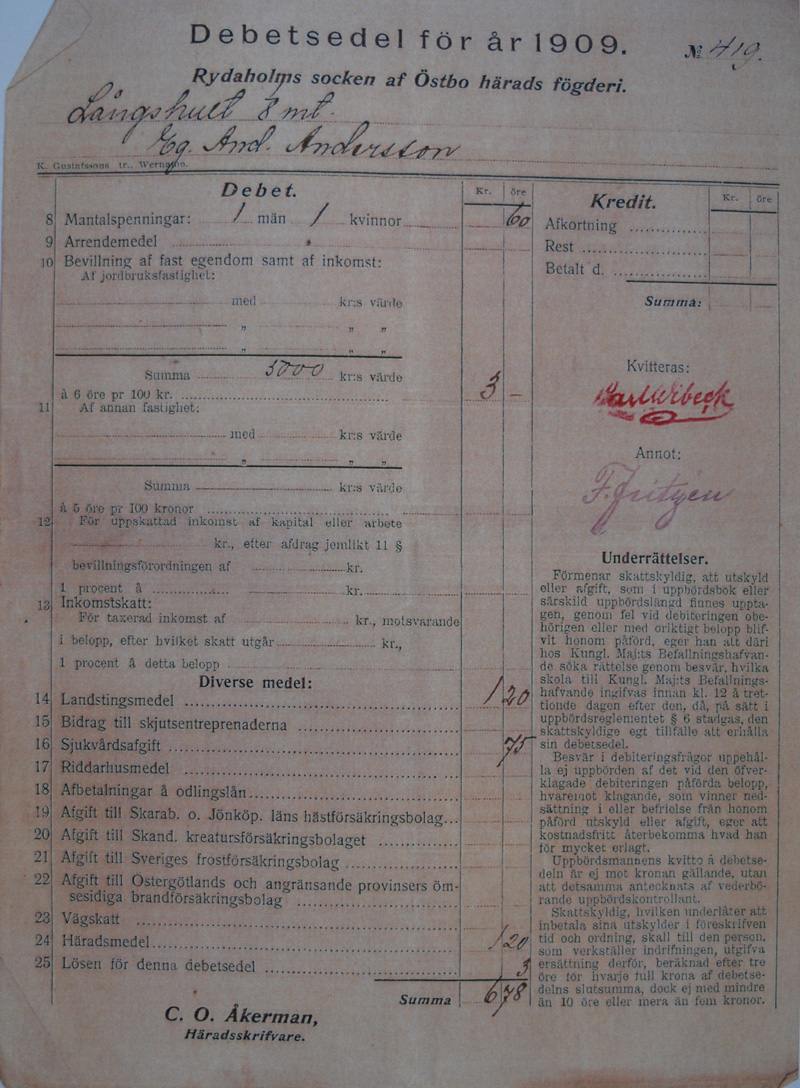 Debetsedel för år 1909.
№ 419.
Rydaholms socken af Östbo härads fögderi.
Långshult 8 mt.
Eg. And. Andersson
K. Gustafssons tr., Wernamo.
Debet.
Kr. öre
8 Mantalspenningar: 1 män 1 kvinnor 60
9 Arrendemedel
10 Bevillning af fast egendom samt af inkomst:
Af jordbruksfastighet:
med kr:s värde
" "
" "
Summa 5000 kr:s värde
à 6 öre pr 100 kr. 3 —
11 Af annan fastighet:
med kr:s värde
" " "
Summa kr:s värde
à 5 öre pr 100 kronor
12 För uppskattad inkomst af kapital eller arbete
kr., efter afdrag jemlikt 11 §
bevillningsförordningen af kr.
1 procent å kr.
13 Inkomstskatt:
För taxerad inkomst af kr., motsvarande
i belopp, efter hvilket skatt utgår kr.,
1 procent å detta belopp
Diverse medel:
14 Landstingsmedel 1 20
15 Bidrag till skjutsentreprenaderna
16 Sjukvårdsafgift 75
17 Riddarhusmedel
18 Afbetalningar å odlingslån
19 Afgift till Skarab. o. Jönköp. läns hästförsäkringsbolag...
20 Afgift till Skand. kreatursförsäkringsbolaget
21 Afgift till Sveriges frostförsäkringsbolag
22 Afgift till Östergötlands och angränsande provinsers öm-
sesidiga brandförsäkringsbolag
23 Vägskatt
24 Häradsmedel 1 20
25 Lösen för denna debetsedel 3
Summa 6 78
C. O. Åkerman,
Häradsskrifvare.
Kredit.
Kr. öre
Afkortning
Rest
Betalt d.
Summa:
Kvitteras:
Annot:
F. Fritzen
Underrättelser.
Förmenar skattskyldig, att utskyld
eller afgift, som i uppbördsbok eller
särskild uppbördslängd finnes uppta-
gen, genom fel vid debiteringen obe-
hörigen eller med oriktigt belopp blif-
vit honom påförd, eger han att däri
hos Kungl. Maj:ts Befallningshafvan-
de söka rättelse genom besvär, hvilka
skola till Kungl. Maj:ts Befallnings-
hafvande ingifvas innan kl. 12 å tret-
tionde dagen efter den, då, på sätt i
uppbördsreglementet § 6 stadgas, den
skattskyldige egt tillfälle att erhålla
sin debetsedel.
Besvär i debiteringsfrågor uppehål-
la ej uppbörden af det vid den öfver-
klagade debiteringen påförda belopp,
hvaremot klagande, som vinner ned-
sättning i eller befrielse från honom
påförd utskyld eller afgift, eger att
kostnadsfritt återbekomma hvad han
för mycket erlagt.
Uppbördsmannens kvitto å debetse-
deln är ej mot kronan gällande, utan
att detsamma antecknats af vederbö-
rande uppbördskontrollant.
Skattskyldig, hvilken underlåter att
inbetala sina utskylder i föreskrifven
tid och ordning, skall till den person,
som verkställer indrifningen, utgifva
ersättning derför, beräknad efter tre
öre för hvarje full krona af debetse-
delns slutsumma, dock ej med mindre
än 10 öre eller mera än fem kronor.